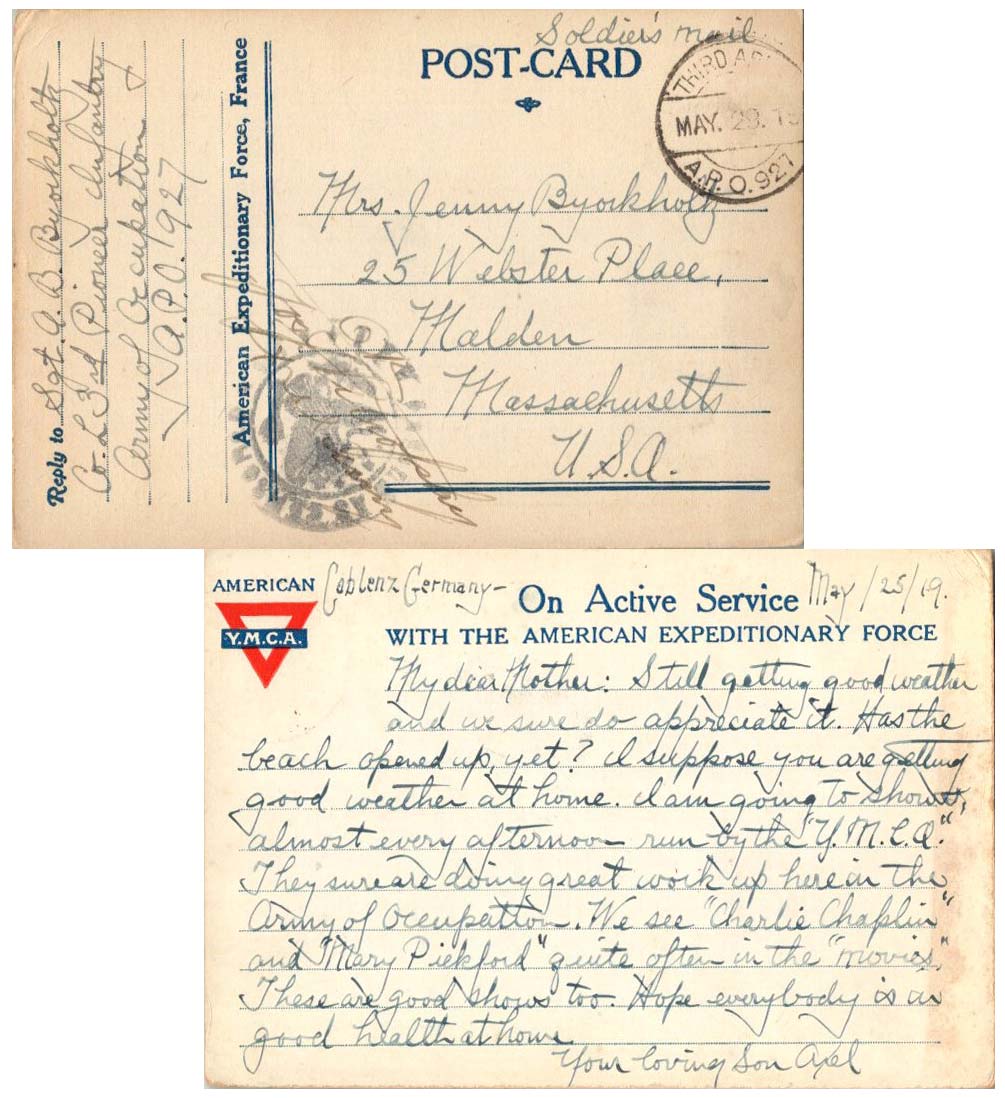 Soldier's mail
POST-CARD
THIRD A
MAY. 28. 19
A.P.O. 927
Mrs. Jenny Byorkholtz
25 Webster Place,
Malden
Massachusetts
U.S.A.
American Expeditionary Force, France
Reply to Sgt. A. B. Byorkholtz
Co. L 3rd Pioneer Infantry
Army of Occupation
A.P.O. 927
AMERICAN
Y.M.C.A.
Coblenz Germany- On Active Service May/25/19.
WITH THE AMERICAN EXPEDITIONARY FORCE
My dear Mother: Still getting good weather
and we sure do appreciate it. Has the
beach opened up, yet? I suppose you are getting
good weather at home. I am going to shows,
almost every afternoon run by the "Y.M.C.A."
They sure are doing great work up here in the
Army of Occupation. We see "Charlie Chaplin"
and "Mary Pickford" quite often in the "movies."
These are good shows too. Hope everybody is in
good health at home
Your loving Son Axel